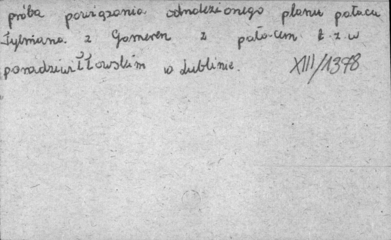 próba powiązania odnalezionego planu pałacu
Tylmana z Gameren z pała-cem t.z.w
poradziwiłłowskim w Lublinie. XIII/1378